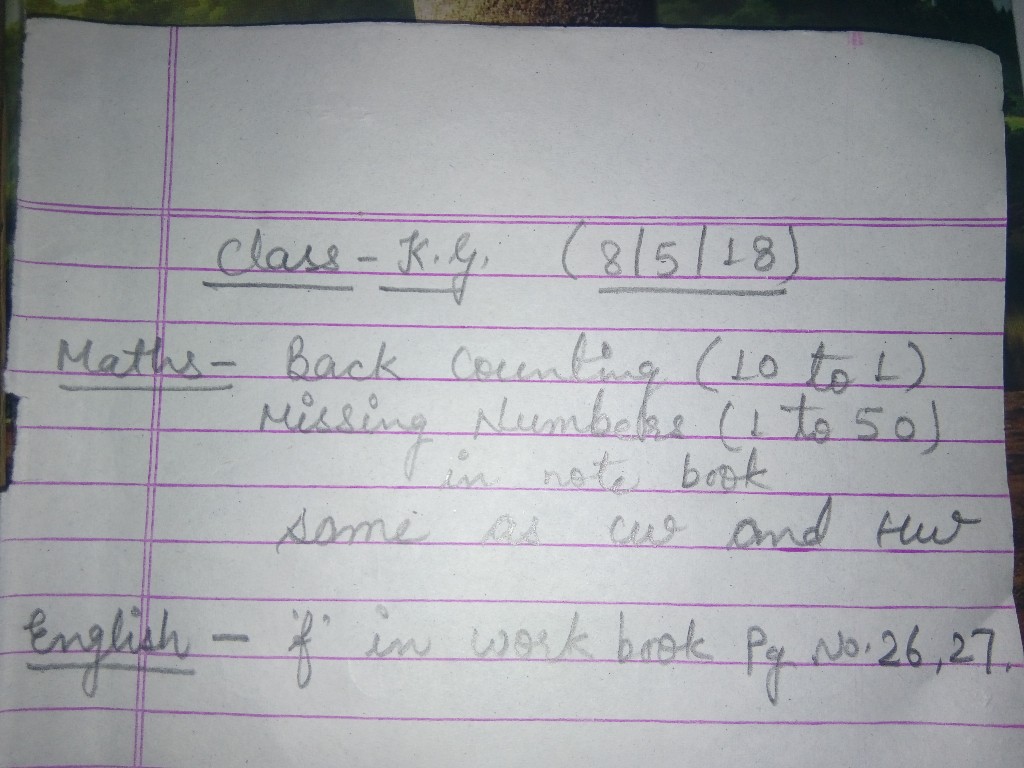 Class - K.G. (8/5/18)
Maths - Back Counting (10 to 1)
Missing Numbers (1 to 50)
in note book
Same as cw and Hw
English - 'f' in work book Pg No. 26,27.